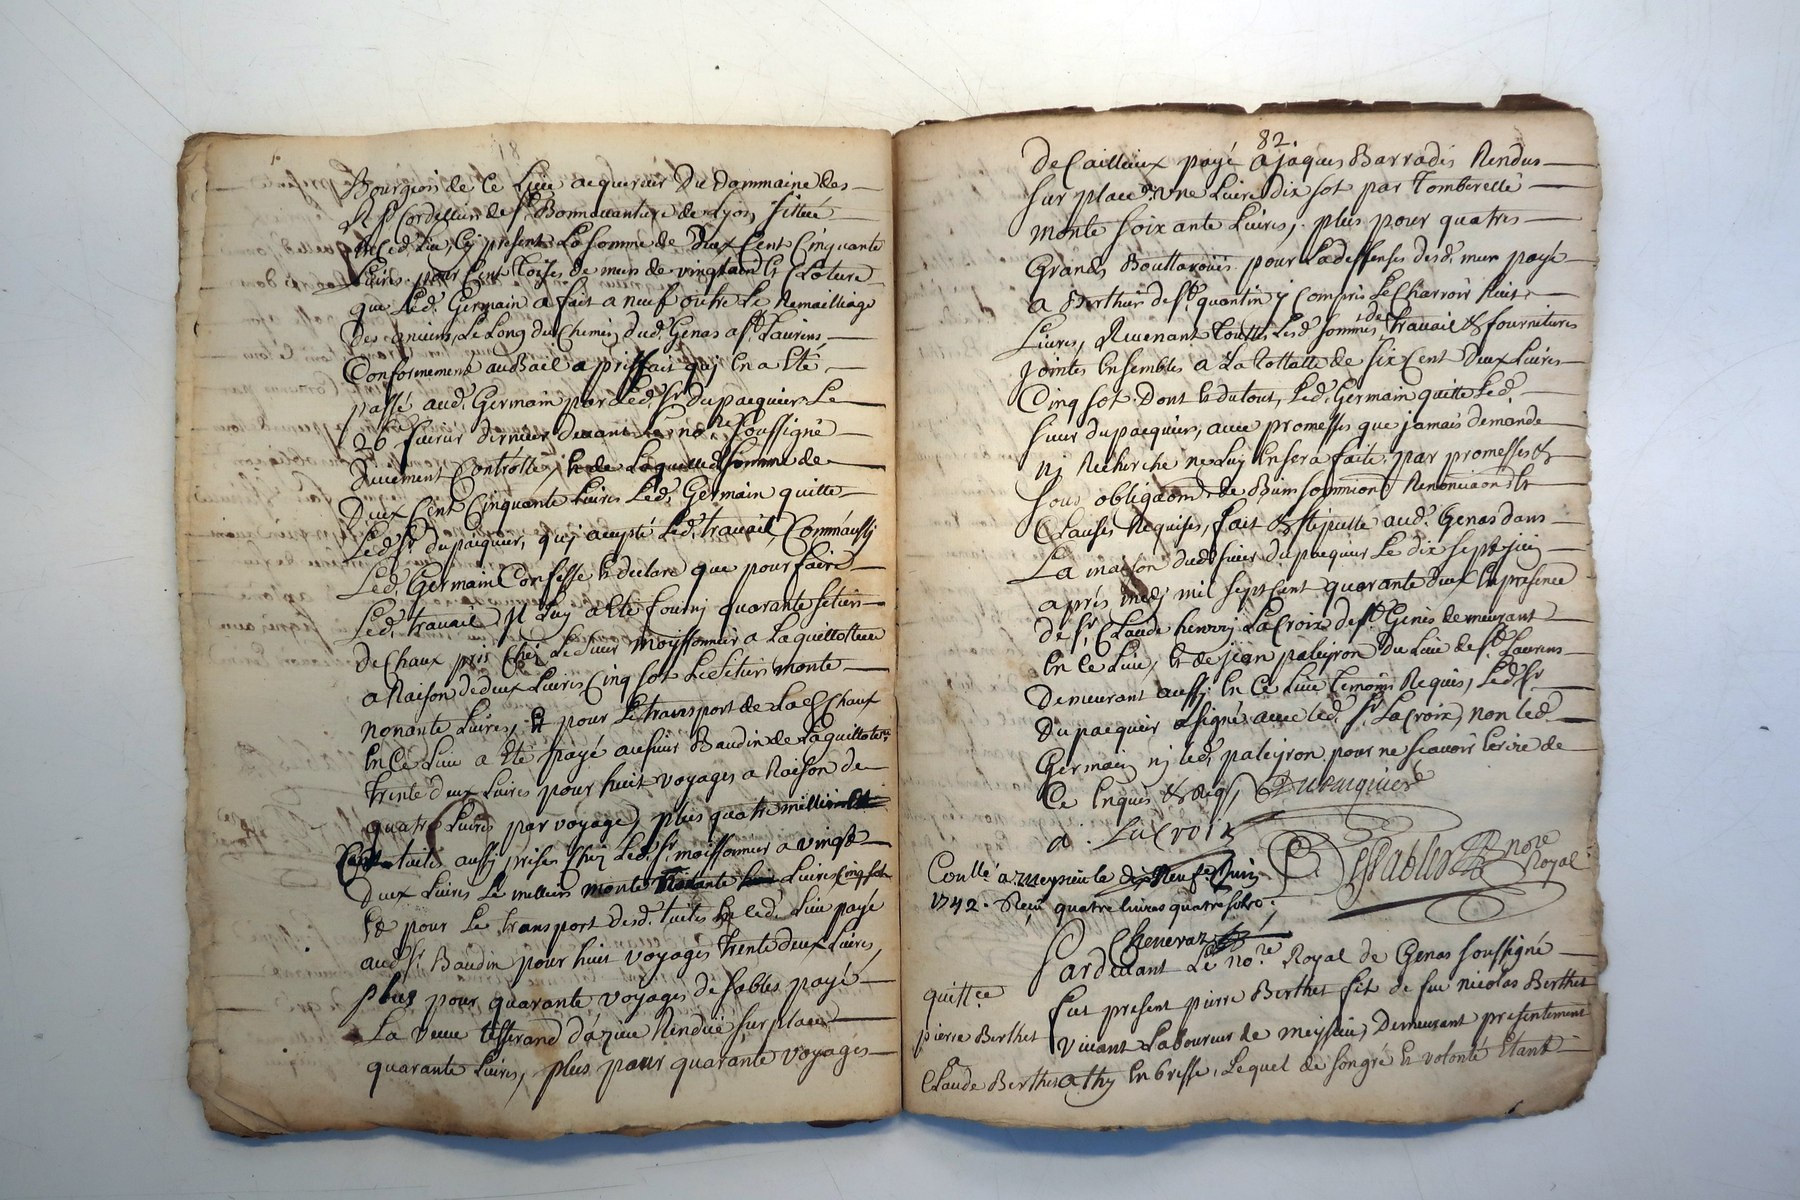 Bourgeois de Ce Lieu acquereur Du Dommaine des
R. Ps Cordelliers de St. Bonnavanture de Lyon, Sittué
en Ced. Lieu, Cy present La Somme de Deux Cent Cinquante
Livres pour Cent Toises de murs de vingtain et Cloture
que Led. Germain a fait a neuf outre Le Remailliage
Des anciens, Le Long du Chemin dud. Genas a St. Laurens
Conformement au Bail a priffait qui en a Eté
passé aud. Germain par Led. Sr. dupacquier Le
26e fevrier dernier devant Le no.re Soussigné
Duement Controllé, et de Laquelle Somme de
Deux Cent Cinquante Livres Led. Germain quitte
Led. Sr. dupacquier, qui accepté Led. travail, Comm'aussy
Led. Germain Confesse et declare que pour faire
Led. travail Jl Luy a Eté fourny quarante setiers
De Chaux pris Chez Le Sieur Moissonnier a Laguillotiere
a Raison de deux Livres Cinq Sol Le Setier monte
nonante Livres, et pour Le transport de Lad. Chaux
En Ce Lieu a Eté payé au Sieur Baudin de Laguillotiere
Trente deux Livres pour huit voyages a Raison de
quatre Livres par voyage, plus quatre milliers
tuiles aussy prises Chez Led. Sr. moissonnier a vingt
Deux Livres Le milliers monte Nonante Livres Cinq sols
Et pour Le transport desd. tuiles En Led. Lieu payé
aud. Sr. Baudin pour huit voyages Trente deux Livres,
plus pour quarante voyages de sables payé
La veuve Tisserand d'azieu Rendüe sur place
quarante Livres, plus pour quarante voyages
82.
De Cailleux payé a Jaques Barradis Rendus
Sur place, Une Livre dix sol par Tomberellé
monte Soixante Livres, plus pour quatres
Grands Bouttarouës pour La deffenses desd. murs payé
a Berthier de St. quantin y Compris Le Charroir huit
Livres, Revenant Touttes Lesd. Sommes de travail & fournitures
Jointes Ensembles a La Tottalle de Six Cent Deux Livres
Cinq sol. Dont et du tout, Led. Germain quitte Led.
Sieur dupacquier, avec promesses que jamais demande
ny Recherche ne Luy En sera faite, par promesses &
Sous obligaons de Biens Soummions Renonciaons Et
Clauses Requises, fait & stipullé aud. Genas dans
La maison dud. Sieur dupacquier Le dix Sept Juin
aprés midy mil Sept Cent quarante deux En presence
de Sr. Claude henry LaCroix de St. Genis demeurant
En Ce Lieu, Et de jean paleyron Du Lieu de St. Laurens
Demeurant aussy En Ce Lieu Temoins Requis, Led. Sr.
Dupacquier a Signé avec Led. Sr. LaCroix, non Led.
Germain ny Led. paleyron pour ne Sçavoir Ecrire de
Ce Enquis & Req.s, Dupacquier
LaCroix
Desablier nore Royal
Coullé a Meysieu le dix Neufe. Juin
1742. Reçu quatre livres quatre sols.
Cheneraz
Pardevant Le no.re Royal de Genas Soussigné
quittce
fut present pierre Berthet fils de feu nicolas Berthet
pierre Berthet
vivant Laboureur de meyssieu, Demeurant presentement
a
Claude Berthet
a thy En bresse, Lequel de Son gré Et volonté Etant